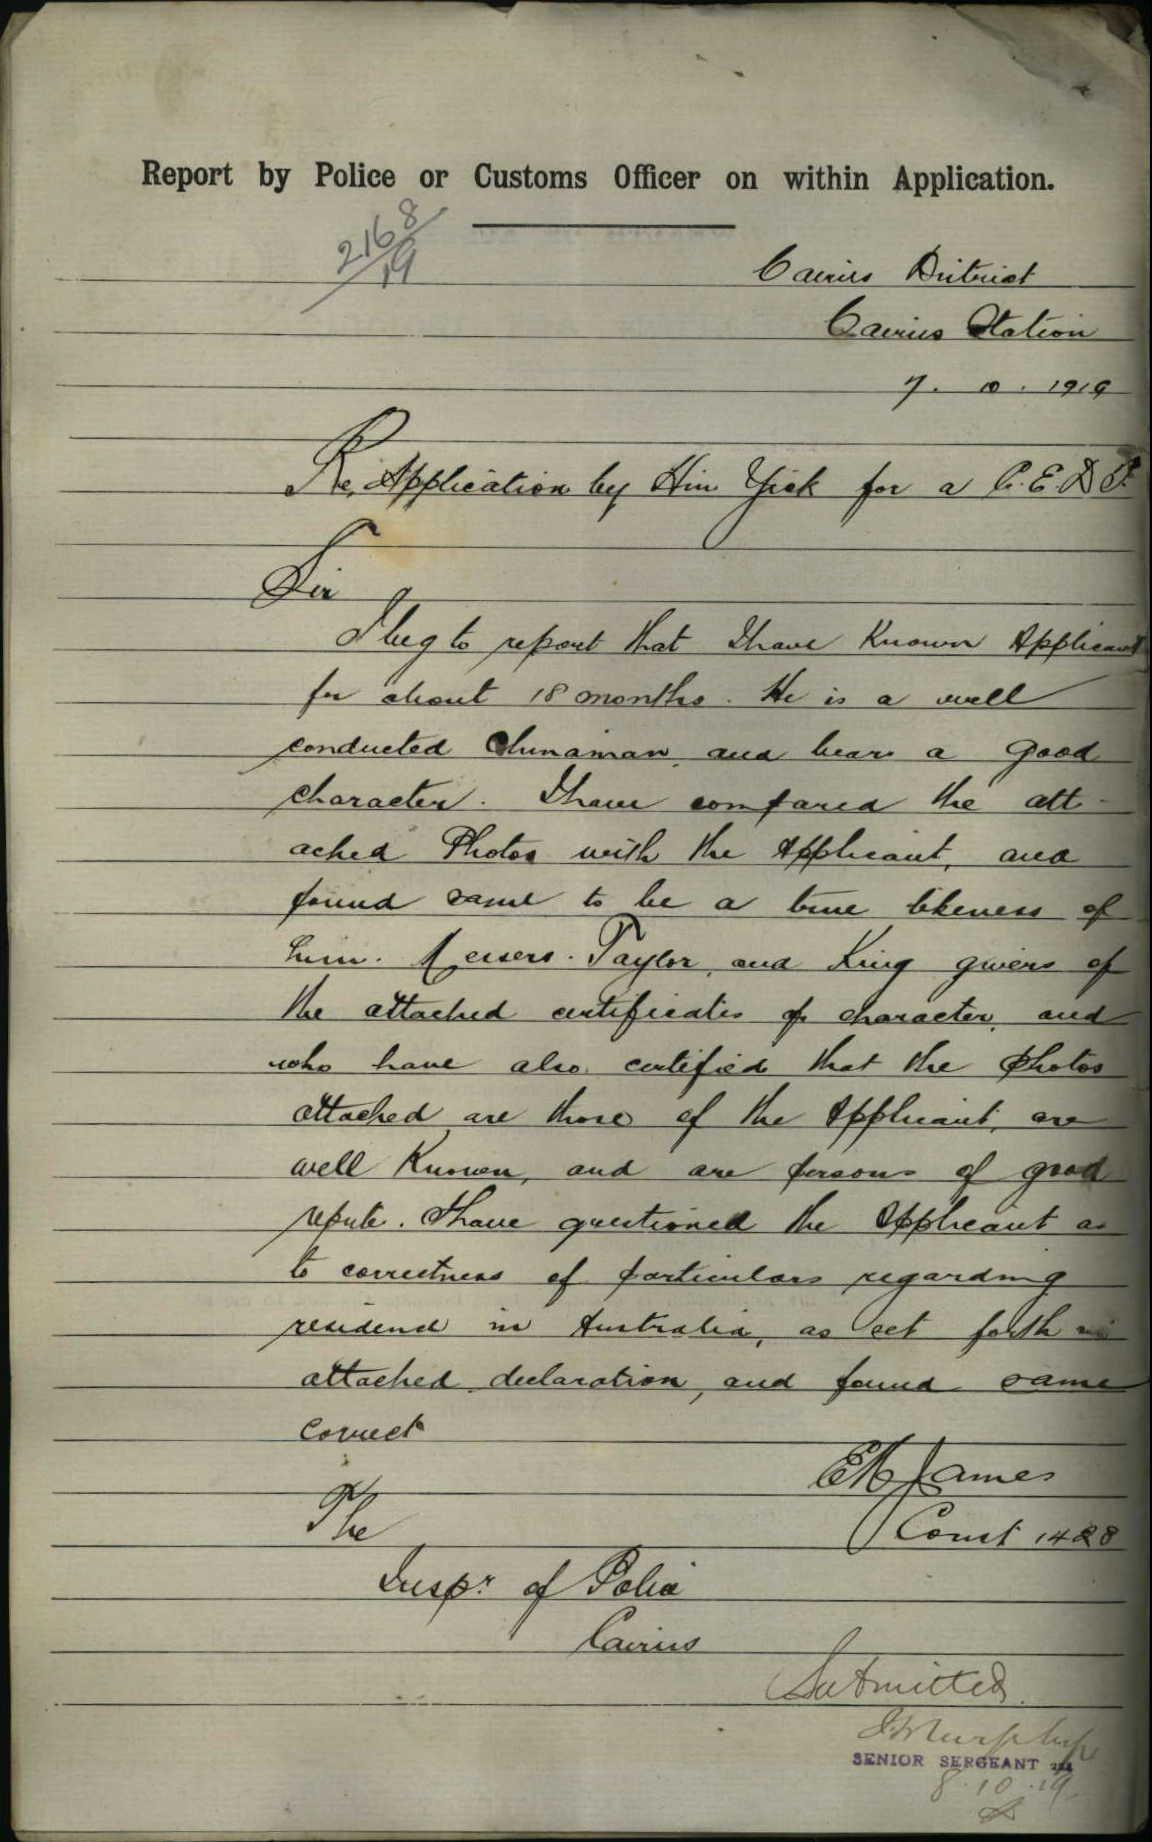 Report by Police or Customs Officer on within Application.
2168/19
Cairns District
Cairns Station
7. 10. 1919
Re, Application by Hin Yick for a C.E.D.T.
Sir
I beg to report that I have Known Applicant
for about 18 months. He is a well
conducted Chinaman, and bears a good
character. I have compared the att-
ached Photos with the Applicant, and
found same to be a true likeness of
him. Messrs. Taylor, and King givers of
the attached certificates of character, and
who have also certified that the photos
attached are those of the Applicant, are
well Known, and are persons of good
repute. I have questioned the Applicant as
to correctness of particulars regarding
residence in Australia, as set forth in
attached declaration, and found same
correct
James
Const 1428
The
Inspr of Police
Cairns
Submitted.
Murphy
SENIOR SERGEANT
8.10.19